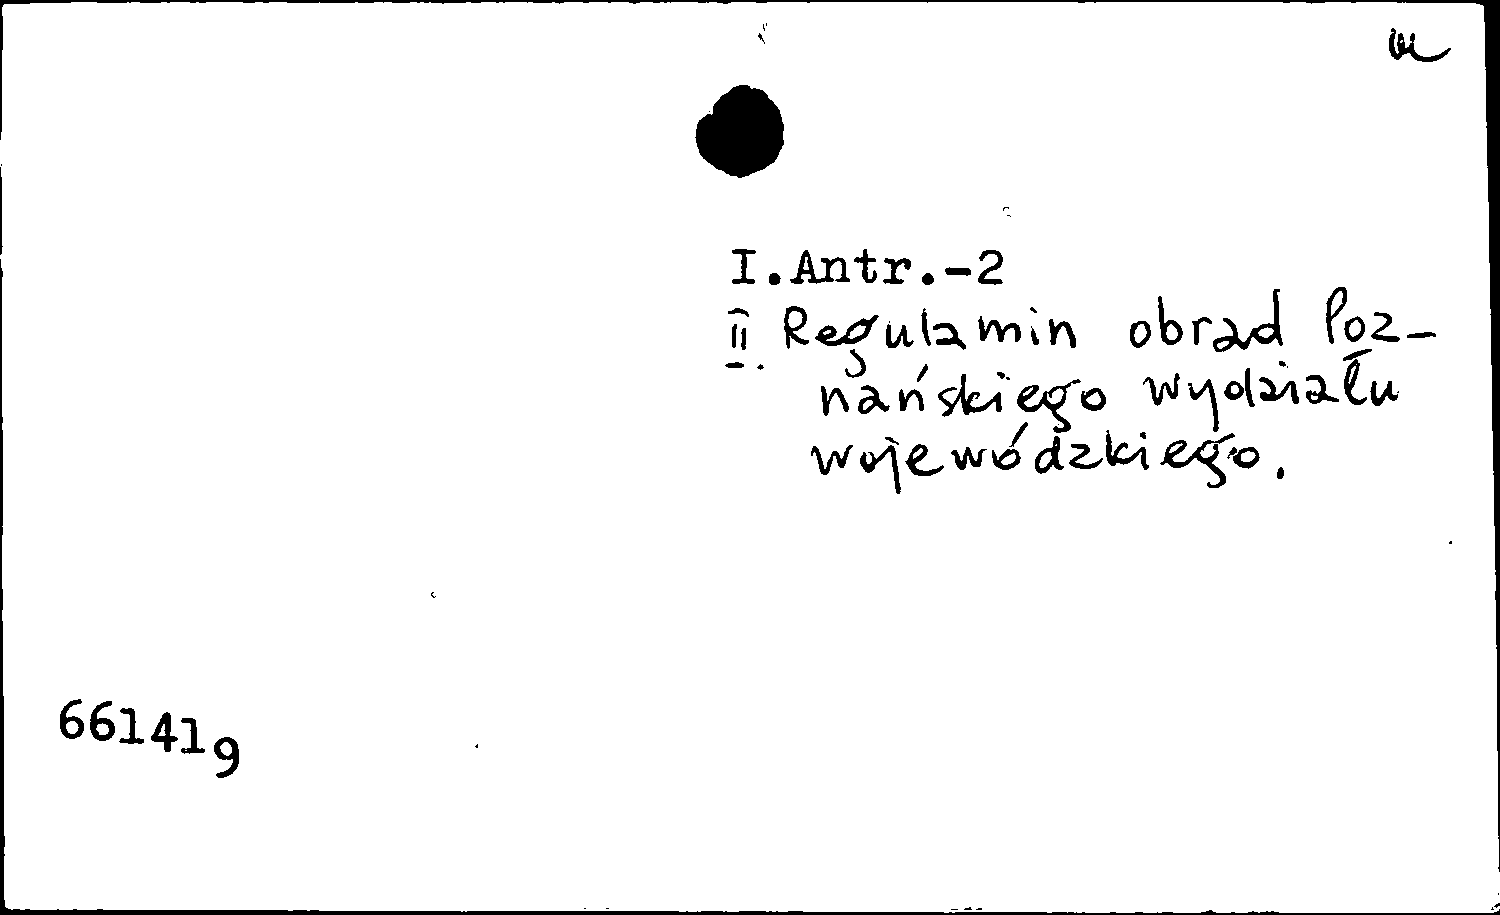 I.Antr.-2
II. Regulamin obrad Poz-
nańskiego wydziału
wojewódzkiego.
661419